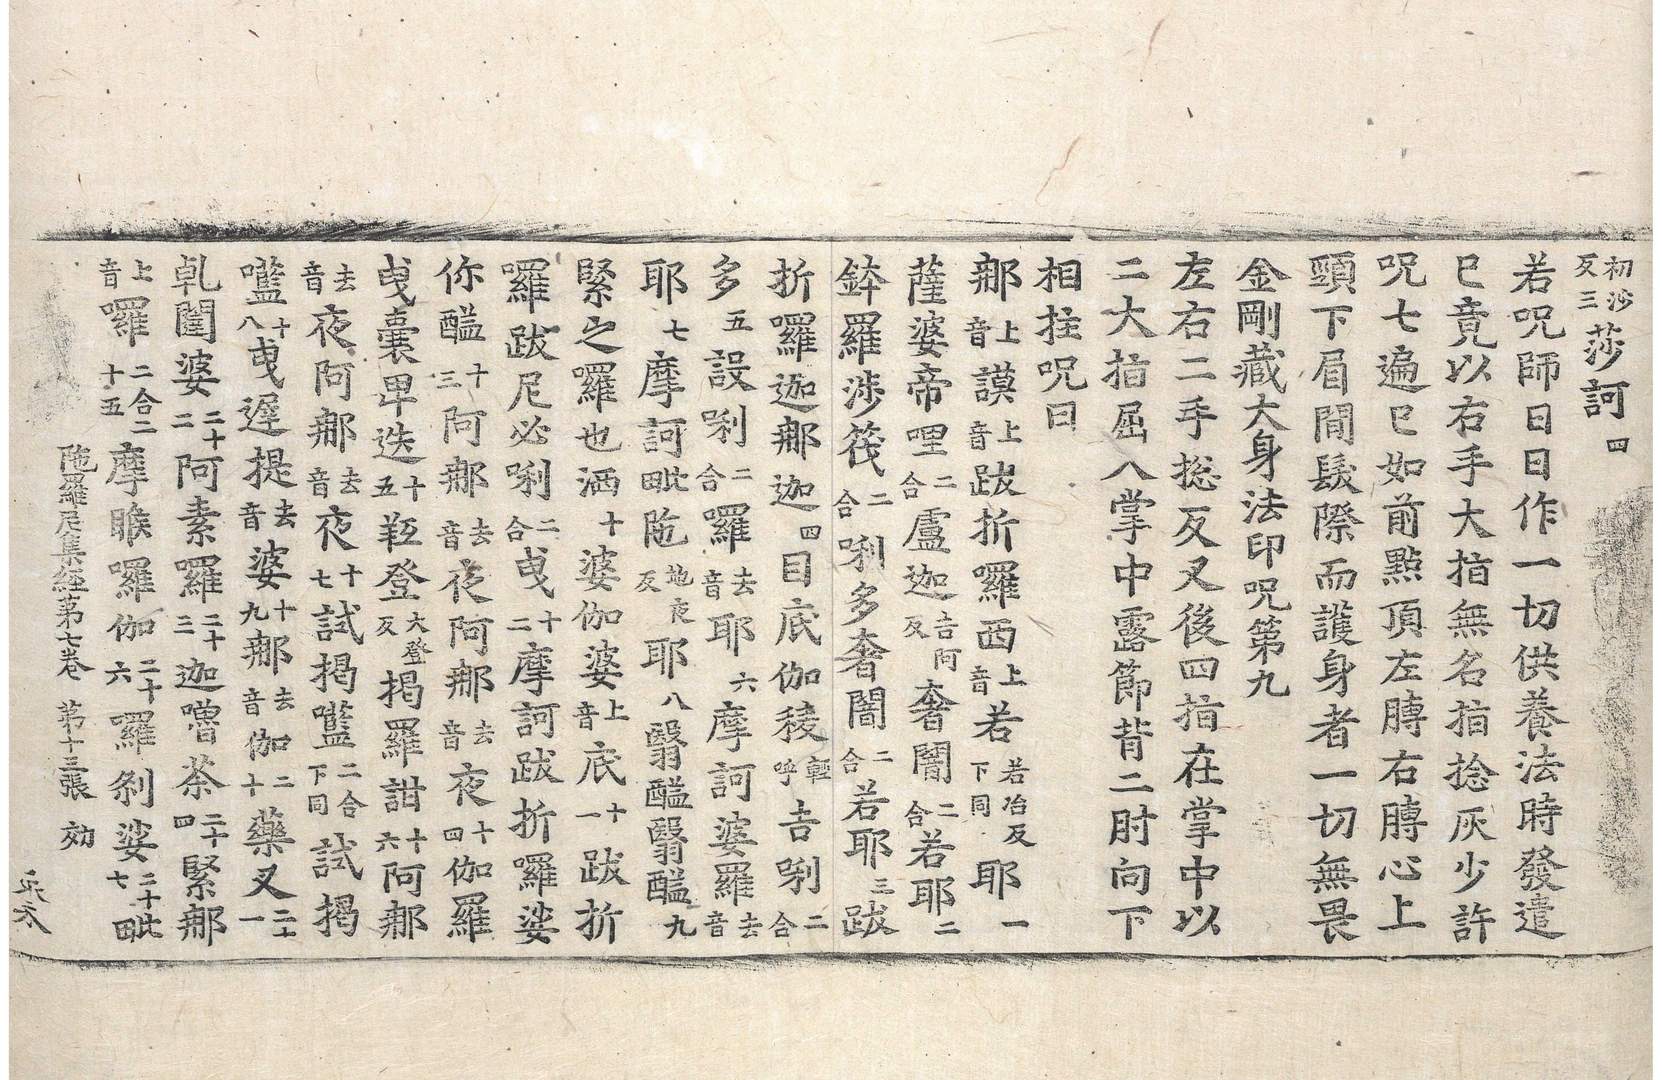 初沙反三莎訶四
若呪師日日作一切供養法時發遣
已竟以右手大指無名指捻灰少許
呪七遍已如前㸃頂左膊右膊心上
頸下眉間髮際而護身者一切無畏
金剛藏大身法印呪第九
左右二手捴反叉後四指在掌中以
二大指屈入掌中露節背二肘向下
相拄呪曰
那上音謨上音跋折囉西上音若若冶反下同耶一
薩婆帝哩二合盧迦吉阿反奢闍二合若耶二
鉢羅涉筏二合唎多奢闍二合若耶三跋
折囉迦那迦四目底伽稜輕呼吉唎二合
多五設唎二合囉去音耶六摩訶婆羅去音
耶七摩訶毗陁地夜反耶八翳醯翳醯九
緊之囉也洒十婆伽婆上音底十一跋折
囉跋尼必唎二合曳十二摩訶跋折囉娑
你醯十三阿那去音夜阿那去音夜十四伽羅
曳囊卑迭十五羟登大登反揭羅詌十六阿那
去音夜阿那去音夜十七試揭㘕二合下同試揭
㘕十八曳遲提去音婆十九那去音伽二十藥叉二十一
乹闥婆二十二阿素囉二十三迦嚕茶二十四緊那
上音囉二合二十五摩睺囉伽二十六囉剎娑二十七毗
陁羅尼集經第七卷　第十三張　効